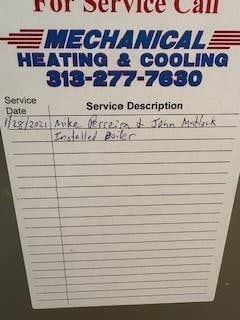 For Service Call
MECHANICAL
HEATING & COOLING
313-277-7630
Service
Date
Service Description
1/28/2021 Mike Ferreira & John Matlock
Installed Boiler